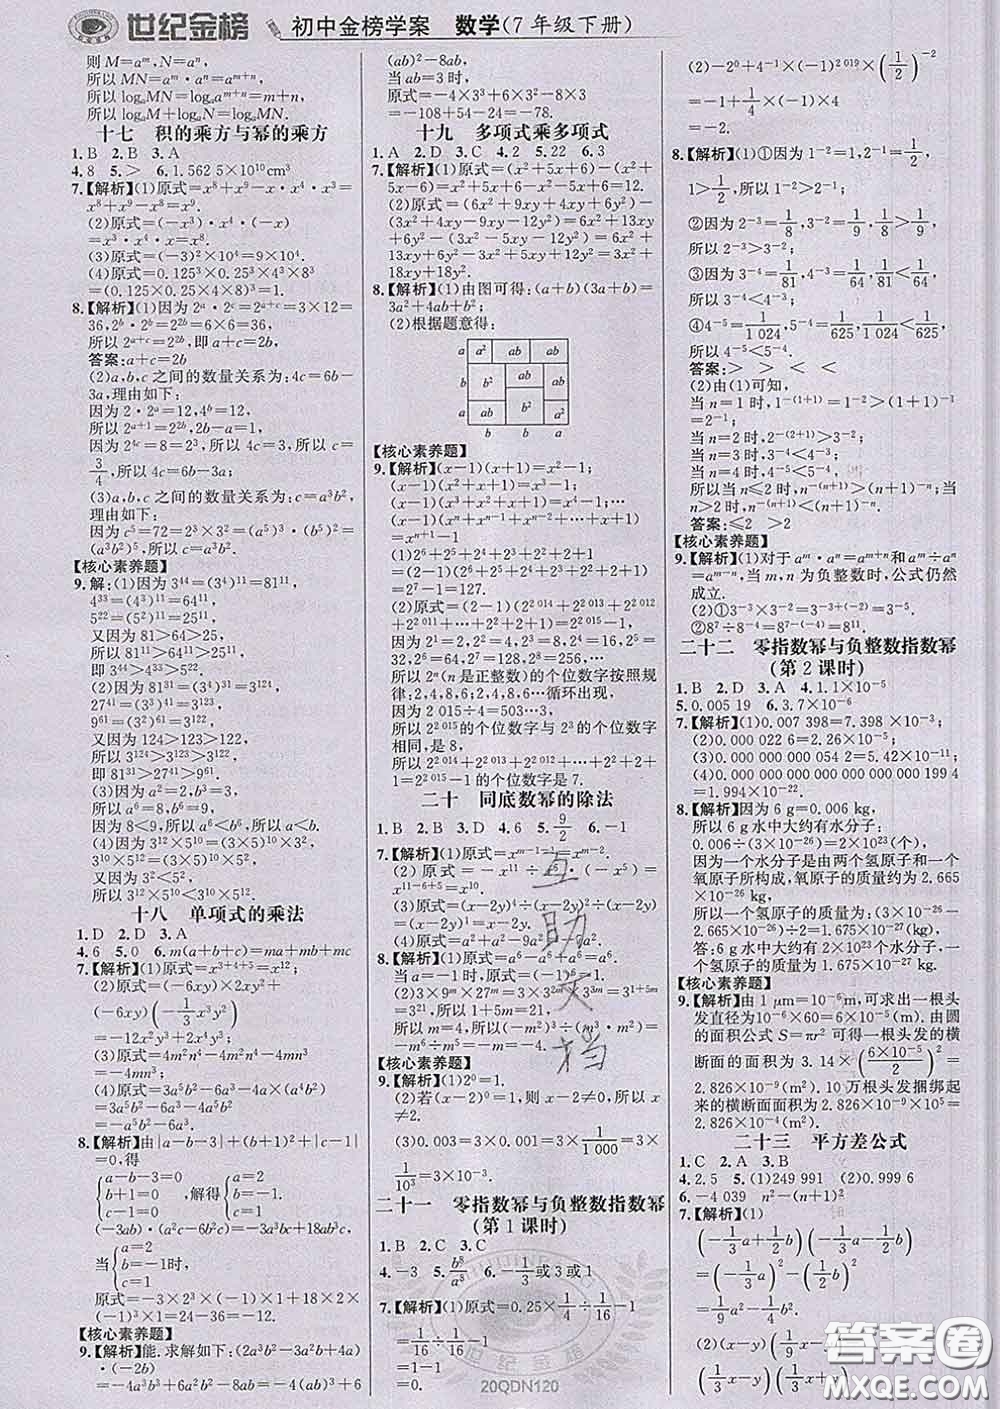 世纪金榜 初中金榜学案 数学(7年级下册)
则 M=aᵐ,N=aⁿ,
所以 MN=aᵐ·aⁿ=aᵐ⁺ⁿ,
所以 logₐMN=logₐaᵐ⁺ⁿ=m+n,
所以 logₐM+logₐN=logₐMN.
十七 积的乘方与幂的乘方
1.B 2.B 3.A
4.8 5.> 6.1.562 5×10¹⁰cm³
7.【解析】(1)原式=x⁸+x⁹-x·x⁴·x³=
x⁸+x⁹-x⁸=x⁹.
(2)原式=(-x³)·x⁴·(-x)
=x³·x⁴·x=x⁸.
(3)原式=(-3)²×10⁴=9×10⁴.
(4)原式=0.125³×0.25³×4³×8³
=(0.125×0.25×4×8)³=1.
8.【解析】(1)因为 2ᵃ·2ᶜ=2ᵃ⁺ᶜ=3×12=
36,2ᵇ·2ᵇ=2²ᵇ=6×6=36,
所以 2ᵃ⁺ᶜ=2²ᵇ,即 a+c=2b.
答案:a+c=2b
(2)a,b,c 之间的数量关系为:4c=6b-
3a,理由如下:
因为 2·2ᵃ=12,4ᵇ=12,
所以 2ᵃ⁺¹=2²ᵇ,2b-a=1.
因为 2⁴ᶜ=8=2³,所以 4c=3,所以 c=
3/4,所以 4c=6b-3a;
(3)a,b,c 之间的数量关系为:c=a³b²,
理由如下:
因为 c⁵=72=2³×3²=(a⁵)³·(b⁵)²=
(a³b²)⁵,所以 c=a³b².
【核心素养题】
9.解:(1)因为 3⁴⁴=(3⁴)¹¹=81¹¹,
4³³=(4³)¹¹=64¹¹,
5²²=(5²)¹¹=25¹¹,
又因为 81>64>25,
所以 81¹¹>64¹¹>25¹¹,
所以 3⁴⁴>4³³>5²².
(2)因为 81³¹=(3⁴)³¹=3¹²⁴,
27⁴¹=(3³)⁴¹=3¹²³,
9⁶¹=(3²)⁶¹=3¹²²,
又因为 124>123>122,
所以 3¹²⁴>3¹²³>3¹²²,
即 81³¹>27⁴¹>9⁶¹.
(3)因为 a²<b²,
所以 a⁶<b⁶,
因为 8<9,所以 a⁶<b⁶,所以 a<b.
(4)因为 3¹²×5¹⁰=(3×5)¹⁰×3²,
3¹⁰×5¹²=(3×5)¹⁰×5²,
又因为 3²<5²,
所以 3¹²×5¹⁰<3¹⁰×5¹².
十八 单项式的乘法
1.D 2.D 3.A
4.6 5.0 6.m(a+b+c)=ma+mb+mc
7.【解析】(1)原式=x³⁺⁴⁺⁵=x¹²;
(2)原式=(-6xy)×2xy²+
(-6xy)(-1/3x³y²)
=-12x²y³+2x⁴y³;
(3)原式=4m²n⁴-4m³-4m²n⁴
=-4m³;
(4)原式=3a⁵b²-6a³-4a×(a²b²)
=3a⁵b²-6a³-4a⁵b²
=-a⁵b²-6a³.
8.【解析】由|a-b-3|+(b+1)²+|c-1|
=0,得
{a-b-3=0 b+1=0 c-1=0 解得{a=2 b=-1 c=1
(-3ab)·(a²c-6b²c)=-3a³bc+18ab³c.
当{a=2 b=-1 c=1时,
原式=-3×2³×(-1)×1+18×2×
(-1)³×1=24-36=-12.
【核心素养题】
9.【解析】能.求解如下:(2a³b²-3a²b+4a)·
(-2b)=-4a³b³+6a²b²-8ab=-4(ab)³+6
(ab)²-8ab,
当 ab=3 时,
原式=-4×3³+6×3²-8×3
=-108+54-24=-78.
十九 多项式乘多项式
1.A 2.D 3.C 4.2 5.22 6.3
7.【解析】(1)原式=(x²+6x+5)-(x²+
5x-6)=x²+6x+5-x²-5x+6=12.
(2)原式=(6x²+9xy+4xy+6y²)-
(3x²+4xy-9xy-12y²)=6x²+13xy
+6y²-(3x²-5xy-12y²)=6x²+13xy
+6y²-3x²+5xy+12y²
=3x²+18xy+18y².
8.【解析】(1)由图可得:(a+b)(3a+b)=
3a²+4ab+b²;
(2)根据题意得:
a a² ab ab a
b b² ab b
b b² b
a ab ab a² a
b b a
【核心素养题】
9.【解析】(x-1)(x+1)=x²-1;
(x-1)(x²+x+1)=x³-1;
(x-1)(x³+x²+x+1)=x⁴-1;
(x-1)(x⁴+x³+x²+x+1)=x⁵-1;…
(x-1)(xⁿ+xⁿ⁻¹+xⁿ⁻²+…+x+1)
=xⁿ⁺¹-1
(1)2⁶+2⁵+2⁴+2³+2²+2+1
=(2-1)(2⁶+2⁵+2⁴+2³+2²+2+1)
=2⁷-1=128-1=127.
(2)原式=(2-1)(2²⁰¹⁴+2²⁰¹³+2²⁰¹²
+2²⁰¹¹+…+2+1)=2²⁰¹⁵-1.
因为 2¹=2,2²=4,2³=8,2⁴=16,2⁵=
32,2⁶=64,
所以 2ⁿ(n 是正整数)的个位数字按照规
律:2,4,8,6,2,4,8,6…循环出现,
因为 2 015÷4=503…3,
所以 2²⁰¹⁵的个位数字与 2³ 的个位数字
相同,是 8,
所以 2²⁰¹⁴+2²⁰¹³+2²⁰¹²+…+2+1
=2²⁰¹⁵-1 的个位数字是 7.
二十 同底数幂的除法
1.B 2.B 3.D 4.6 5.9/2 6.-1
7.【解析】(1)原式=xᵐ⁻¹⁻¹=xᵐ⁻².
(2)原式=-x¹¹÷x⁶·(-x⁵)=
x¹¹⁻⁶⁺⁵=x¹⁰.
(3)原式=(x-2y)⁴÷(x-2y)²÷(x-
2y)=(x-2y)¹=x-2y.
(4)原式=a⁹-a⁹=0.
8.【解析】(1)原式=a⁶-a⁶+a⁶=a⁶.
当 a=-1 时,原式=1.
(2)3×9ᵐ×27ᵐ=3×3²ᵐ×3³ᵐ=3¹⁺⁵ᵐ
=3²¹,所以 1+5m=21,
所以 m=4,所以(-m²)³÷(m³·m²)=
-m⁶÷m⁵=-m=-4.
【核心素养题】
9.【解析】(1)2⁰=1.
(2)若(x-2)⁰=1,则 x-2≠0,所以 x
≠2.
(3)0.003=3×0.001=3×1/1 000=3×
1/10³=3×10⁻³.
二十一 零指数幂与负整数指数幂
(第1课时)
1.B 2.C 3.C
4.-3 5.b⁸/a⁸ 6.-1/3或 3 或 1
7.【解析】(1)原式=0.25×1/4÷1/16-1
=1/16÷1/16-1
=1-1
=0.
(2)-2⁰+4⁻¹×(-1)²⁰¹⁹×(1/2)⁻²
=-1+1/4×(-1)×4
=-2.
8.【解析】(1)①因为 1⁻²=1,2⁻¹=1/2,
1>1/2,所以 1⁻²>2⁻¹;
②因为 2⁻³=1/8,3⁻²=1/9,1/8>1/9,
所以 2⁻³>3⁻²;
③因为 3⁻⁴=1/81,4⁻³=1/64,1/81<1/64,
所以 3⁻⁴<4⁻³;
④4⁻⁵=1/1 024,5⁻⁴=1/625,1/1 024<1/625,
所以 4⁻⁵<5⁻⁴.
答案:> > < <
(2)由(1)可知,
当 n=1 时,1⁻⁽¹⁺¹⁾=1⁻²>(1+1)⁻¹
=2⁻¹;
当 n=2 时,2⁻⁽²⁺¹⁾>3⁻²;
当 n=3 时,3⁻⁴<4⁻³;
当 n=4 时,4⁻⁵<5⁻⁴;
所以当 n≤2 时,n⁻⁽ⁿ⁺¹⁾>(n+1)⁻ⁿ,当
n>2 时,n⁻⁽ⁿ⁺¹⁾<(n+1)⁻ⁿ.
答案:≤2 >2
【核心素养题】
9.【解析】(1)对于 aᵐ·aⁿ=aᵐ⁺ⁿ和 aᵐ÷aⁿ
=aᵐ⁻ⁿ,当 m,n 为负整数时,公式仍然
成立.
(2)①3⁻³×3⁻²=3⁻³⁺⁽⁻²⁾=3⁻⁵.
②8⁷÷8⁻⁴=8⁷⁺⁴=8¹¹.
二十二 零指数幂与负整数指数幂
(第2课时)
1.B 2.D 3.A 4.1.1×10⁻⁵
5.0.005 19 6.3.7×10⁻⁶
7.【解析】(1)0.007 398=7.398×10⁻³;
(2)0.000 022 6=2.26×10⁻⁵;
(4)0.000 000 000 000 000 000 000 199 4
=1.994×10⁻²².
8.【解析】因为 6 g=0.006 kg,
所以 6 g水中大约有水分子:
0.006÷(3×10⁻²⁶)=2×10²³(个),
因为一个水分子是由两个氢原子和一个
氧原子所构成,氧原子的质量约为 2.665
×10⁻²⁶ kg,
所以一个氢原子的质量为:(3×10⁻²⁶-
2.665×10⁻²⁶)÷2=1.675×10⁻²⁷(kg).
答:6 g水中大约有 2×10²³个水分子,一
个氢原子的质量约为 1.675×10⁻²⁷ kg.
【核心素养题】
9.【解析】由 1 μm=10⁻⁶m,可求出一根头
发直径为10⁻⁶×60=6×10⁻⁵(m).由圆
的面积公式 S=πr² 可得一根头发的横
断面的面积为 3.14×(6×10⁻⁵/2)²=
2.826×10⁻⁹(m²).10万根头发捆绑起来
的横断面面积为 2.826×10⁻⁹×10⁵=
2.826×10⁻⁴(m²).
二十三 平方差公式
1.C 2.A 3.B
4.2,5 5.(1)249 991 (2)0.999 6
6.-4 039 n²-(n+1)²
7.【解析】(1)
(-1/3a+1/2b)(-1/3a-1/2b)
=(-1/3a)²-(1/2b)²
=1/9a²-1/4b².
(2)(x-y)(1/9x+1/9y)-
(1/3x-y)(1/3x+y)
互助文档
世纪金榜
20QDN120
答案圈
MXQE.COM